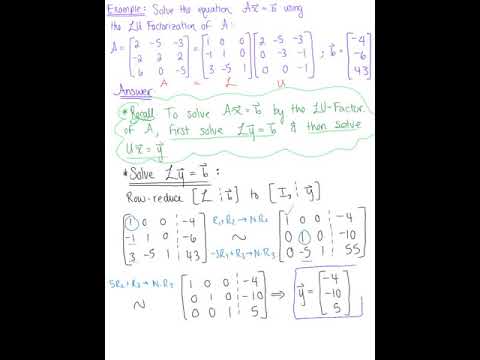 Example: Solve the equation Ax⃗ = b⃗ using
the LU Factorization of A:
A = [2 -5 -3; -2 2 2; 6 0 -5] = [1 0 0; -1 1 0; 3 -5 1] [2 -5 -3; 0 -3 -1; 0 0 -1] ; b⃗ = [-4; -6; 43]
A = L U
Answer:
* Recall: To solve Ax⃗ = b⃗ by the LU-Factor.
of A, first solve Ly⃗ = b⃗ & then solve
Ux⃗ = y⃗
* Solve Ly⃗ = b⃗ :
Row-reduce [L ⋮ b⃗] to [I₃ ⋮ y⃗]
[1 0 0 ⋮ -4; -1 1 0 ⋮ -6; 3 -5 1 ⋮ 43] R₁+R₂→N.R₂ ~ -3R₁+R₃→N.R₃ [1 0 0 ⋮ -4; 0 1 0 ⋮ -10; 0 -5 1 ⋮ 55]
5R₂+R₃→N.R₃ ~ [1 0 0 ⋮ -4; 0 1 0 ⋮ -10; 0 0 1 ⋮ 5] ⇒ y⃗ = [-4; -10; 5]